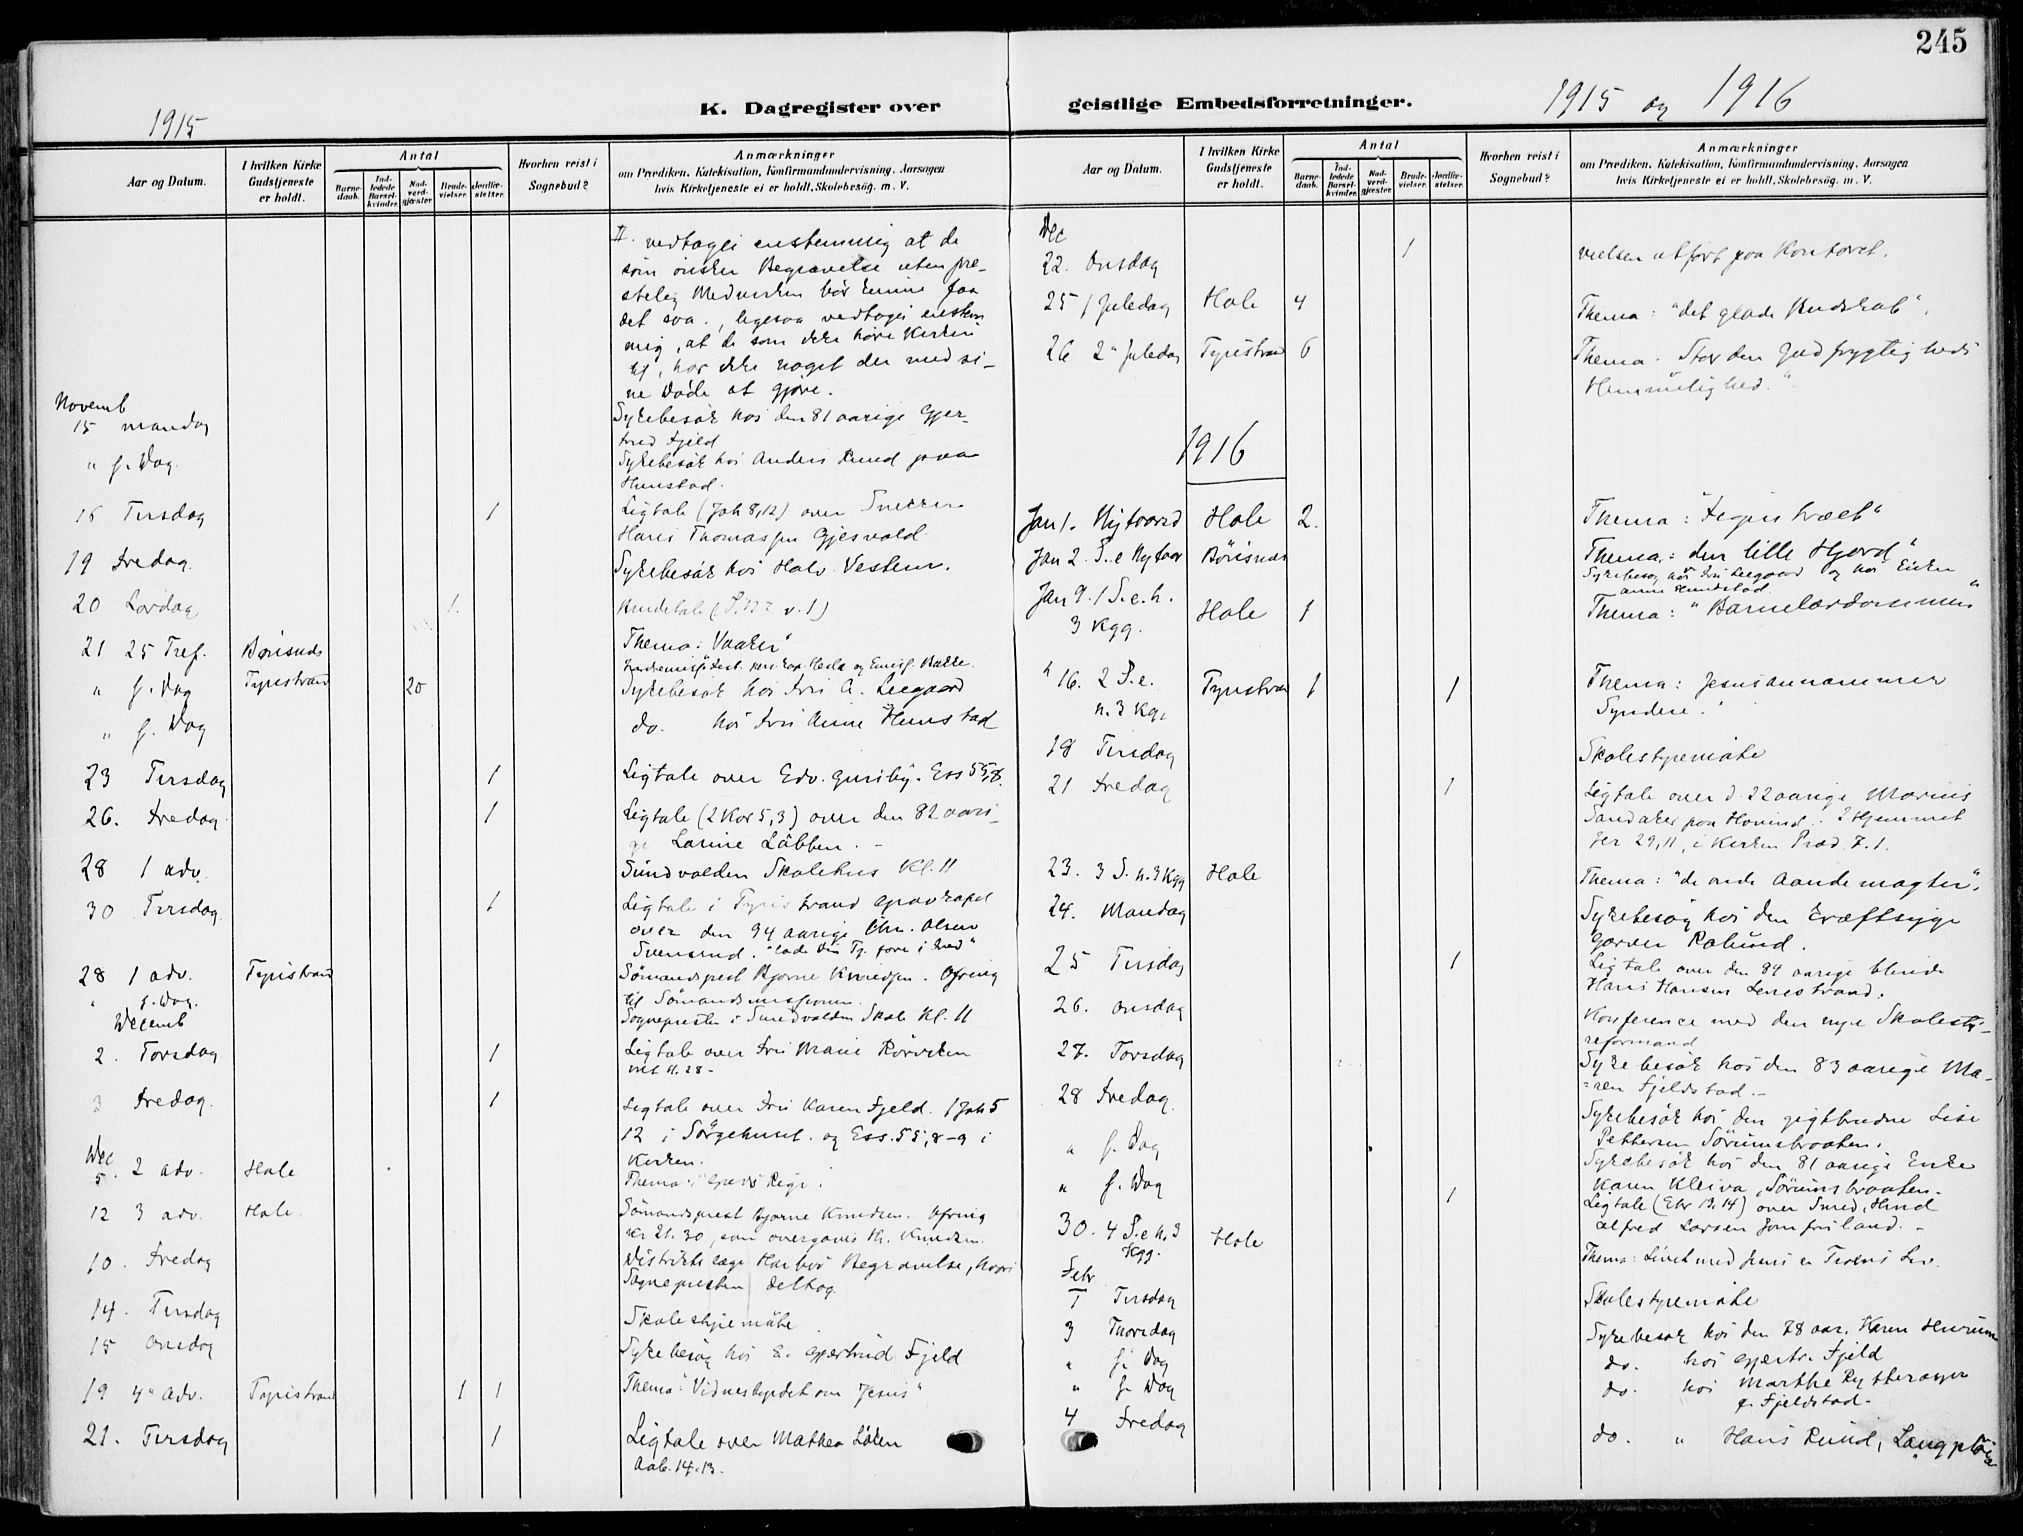 245
1915
K. Dagregister over
geistlige Embedsforretninger.
1915 og 1916
Aar og Datum.
I hvilken Kirke Gudstjeneste er holdt.
Antal
Barne-daab.
Ind-ledede Barsel-kvinder.
Nad-verd-gjæster
Brude-vielser.
Jordfæ-stelser.
Hvorhen reist i Sognebud?
Anmærkninger
om Prædiken, Katekisation, Konfirmandundervisning, Aarsagen
hvis Kirketjeneste ei er holdt, Skolebesøg. m. V.
II. vedtoges enstemmig at de
som ønsker Begravelse uten pre-
stelig Medvirken bør kunne faa
det saa., ligesaa vedtoges enstem
mig, at de som ikke hører Kirken
til, har ikke noget der med si-
ne Døde at gjøre.
Novemb
15 mandag Sykebesøk hos den 81 aarige Gjer-
trud Fjeld
" s. Dag. Sykebesøk hos Anders Rund paa
Hunstad.
16 Tirsdag 1 Ligtale (Joh 8,12) over Snekker
Hans Thomassen Gjesvold.
19 Fredag. Sykebesøk hos Halv. Vestern.
20 Lørdag 1. Brudetale ( v. 1)
21 25 Tref. Bønsnes Thema: Vaaker"
" s. Dag Tyristrand 20
Sykebesøk hos Fru A. Leegaard
" s. Dag do. hos Fru Anne Hunstad
23 Tirsdag 1 Ligtale over Edv. Gunby. Ess 55,8.
26. Fredag 1 Ligtale (2 Kor 5,3) over den 82 aari-
ge Larine Löbben. -
28 1 adv. Sundvolden Skolehus Kl. 11
30 Tirsdag 1 Ligtale i Tyristrand Gravkapel
over den 94 aarige Chr. Olsen
Svensrud. "lade din Tj. fare i Fred"
28 1 adv. Tyristrand Sømandsprest Bjarne Knudsen. Ofring
" s. Dag. til Sømandsmissionen.
Sognepresten i Sundvolden Skole Kl. 11
Decemb
2. Torsdag 1 Ligtale over Fru Marie Rørviken
Mt 11.28 -
3 Fredag. 1 Ligtale over Fru Karen Fjeld. 1 Joh 5
12 i Sørgehuset. og Ess. 55,8-9 i
Kirken.
Dec
5. 2 adv. Hole Thema: "Guds Rige.
12 3 adv. Hole. Sømandsprest Bjarne Knudsen. Ofring
kr 21.30, som overgaves Hr. Knudsen.
10. Fredag Distriktslæge Harbos Begravelse, hvori
Sognepresten deltog.
14. Tirsdag Skolestyremøte
15 Onsdag Sykebesøg hos E. Gjertrud Fjeld
19 4" Adv. Tyristrand 1 1 Thema "Vidnesbyrdet om Jesus"
21. Tirsdag 1 Ligtale over Mathea Løken
Aab. 14.13.
Aar og Datum.
I hvilken Kirke Gudstjeneste er holdt.
Antal
Barne-daab.
Ind-ledede Barsel-kvinder.
Nad-verd-gjæster
Brude-vielser.
Jordfæ-stelser.
Hvorhen reist i Sognebud?
Anmærkninger
om Prædiken, Katekisation, Konfirmandundervisning, Aarsagen
hvis Kirketjeneste ei er holdt, Skolebesøg. m. V.
Dec
22. Onsdag 1 vielsen utført paa Kontoret.
25 1 Juledag Hole 4 Thema: "det glade Budskab".
26 2" Juledag Tyristrand 6 Thema. Stor den Gudfrygtigheds
Hemmelighed."
1916
Jan 1. Nytaarsd Hole 2. Thema: "Figentræet"
Jan 2. S.e Nytaar Bønsnes Thema: den lille Hjord"
Sykebesøg hos Fru Leegaard og hos Enken
Anne Hunstad
Jan 9. 1 S.e.h. Hole 1 Thema: "Barnelærdommen"
3 Kgg.
" 16. 2 S.e. Tyristrand 1 1 Thema: Jesus annammer
h. 3 Kg. Syndere."
18 Tirsdag Skolestyremøte
21 Fredag 1 Ligtale over d. 22 aarige Marius
Sandaker paa Honerud. I Hjemmet
Jer 29,11, i Kirken Præd. 7.1.
23. 3 S. h. 3 Kgg Hole Thema: "de onde Aandemagter".
24. Mandag Sykebesøg hos den kræftsyge
Garver Rolund.
25 Tirsdag 1 Ligtale over den 84 aarige blinde
Hans Hansen Lenestrand.
26. Onsdag Konference med den nye Skolesty-
reformand
27. Torsdag Sykebesøk hos den 83 aarige Ma-
=ren Fjeldstad. -
28 Fredag Sykebesøk hos den gigtbrudne Lise
Pettersen Sørumsbraaten.
" s. Dag Sykebesøk hos den 81 aarige Enke
Karen Kleiva, Sørumsbraaten.
" s. Dag 1 Ligtale (Ebr 13.14) over Smed, Hmd
Alfred Larsen Jomfruland. -
30. 4 S.e h. 3 Hole Thema: Livet med Jesus er Troens Liv.
Kgg.
Febr
1 Tirsdag Skolestyremøte
3 Thorsdag Sykebesøk hos den 78 aar. Karen Hurum
" s. Dag do. hos Gjertr. Fjeld
" s. Dag do. hos Marthe Rytterager
f. Fjeldstad.
4 Fredag do. " Hans Rund,